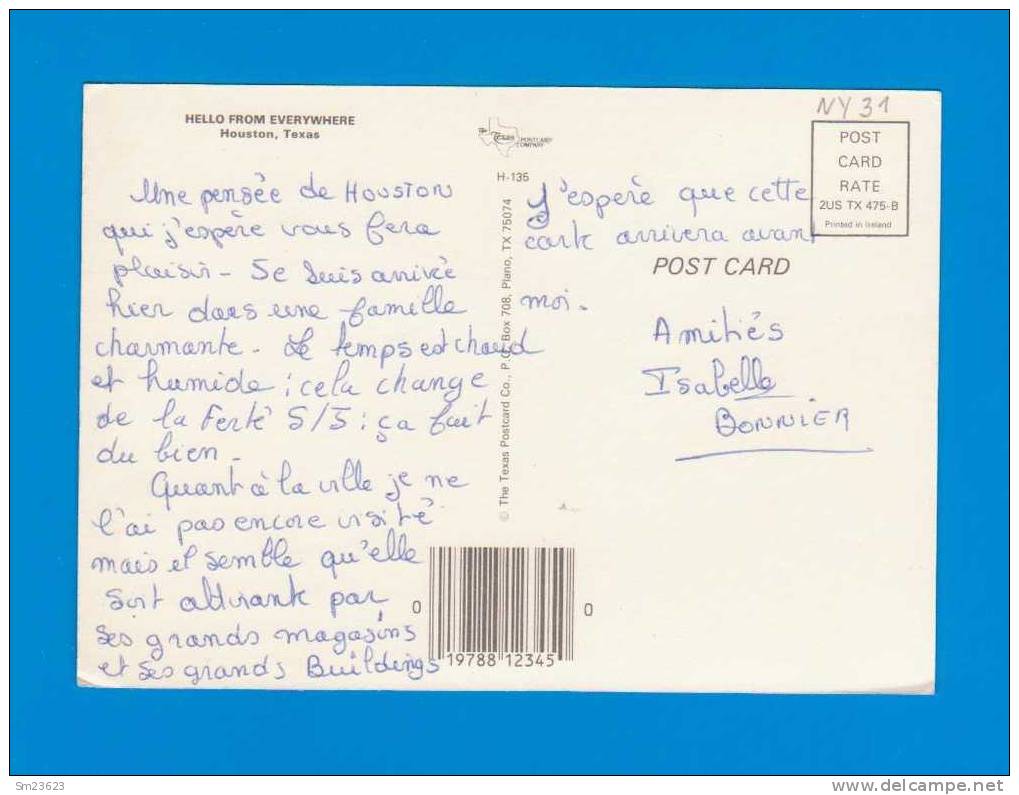 HELLO FROM EVERYWHERE
Houston, Texas
Une pensée de Houston
qui j'espère vous fera
plaisir - Je suis arrivée
hier dans une famille
charmante - Le temps est chaud
et humide ; cela change
de la Ferté S/J : ça fait
du bien -
Quant à la ville je ne
l'ai pas encore visité
mais il semble qu'elle
soit attirante par
ses grands magasins
et ses grands Buildings
Texas POSTCARD
COMPANY
H-135
© The Texas Postcard Co., P.O. Box 708, Plano, TX 75074
NY 31
POST
CARD
RATE
2US TX 475-B
Printed in Ireland
J'espère que cette
carte arrivera avant
POST CARD
moi.
Amitiés
Isabelle
BONNIER
0 19788 12345 0
Sm23623
www.delcampe.net